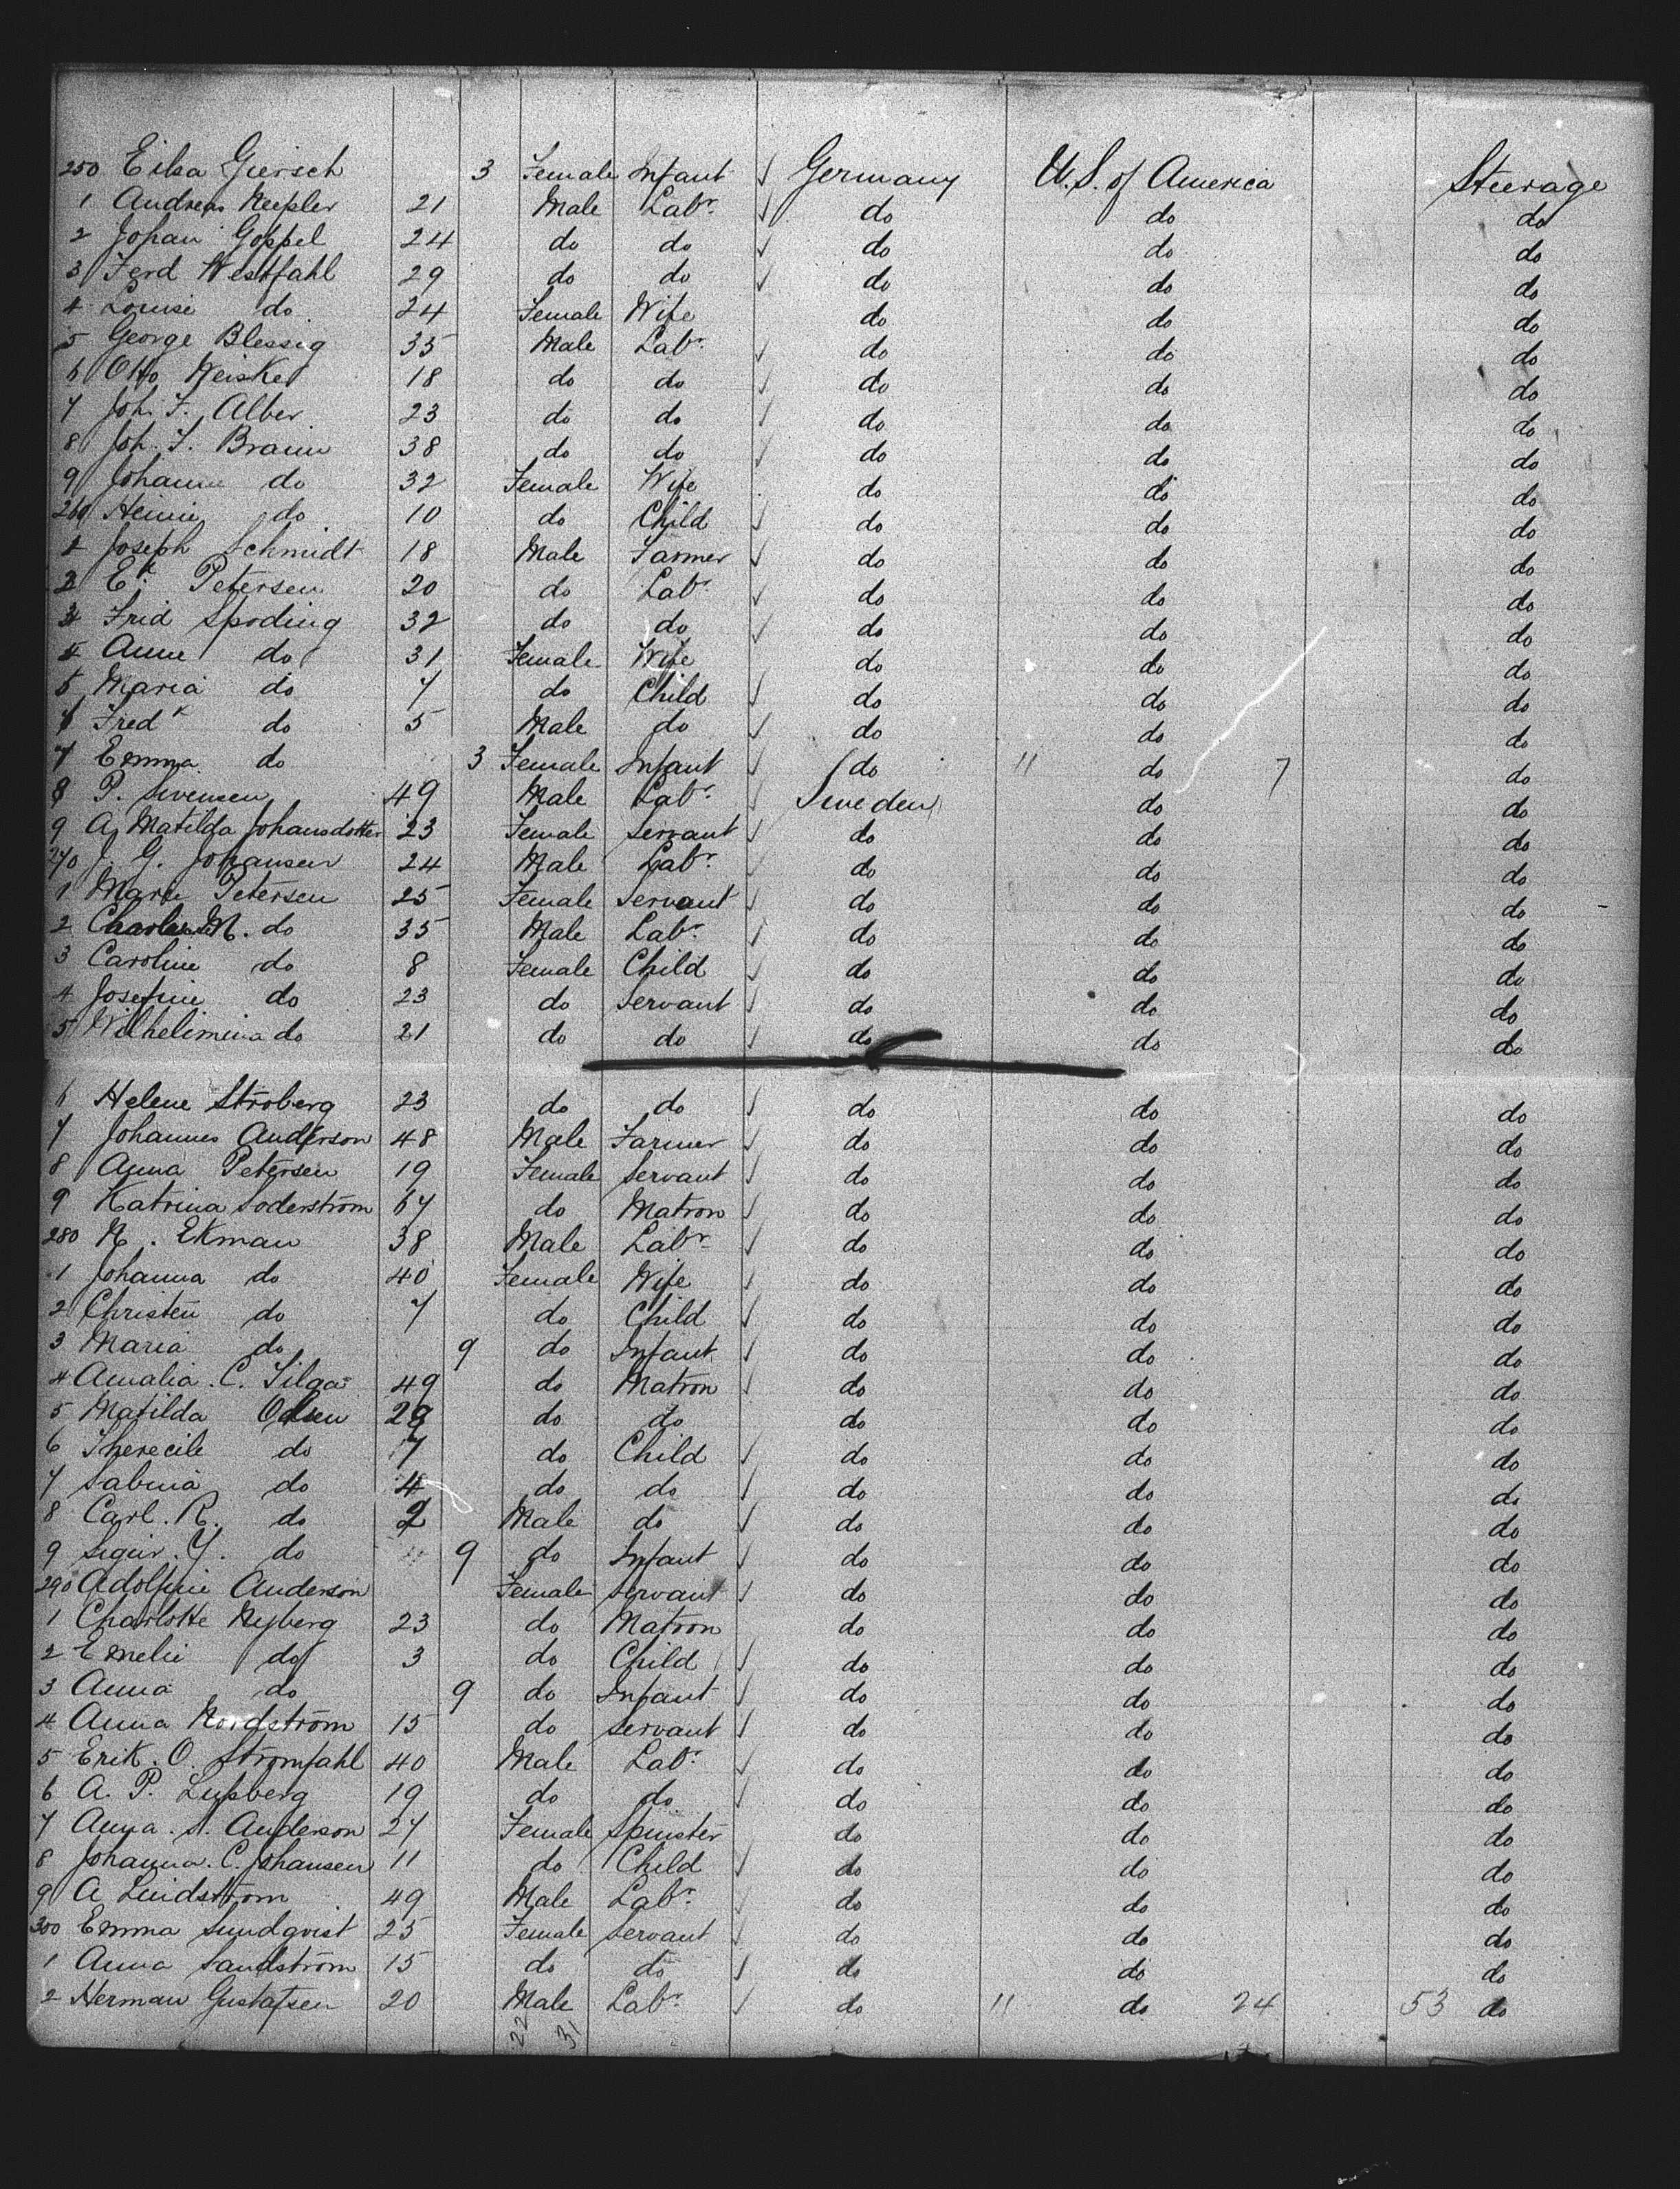 250 Eilsa Giersch 3 Female Infant Germany U.S. of America Steerage
1 Andreas Nepler 21 Male Labr. do do do
2 Johan Goppel 24 do do do do do
3 Ferd Westfahl 29 do do do do do
4 Louise do 24 Female Wife do do do
5 George Blessig 35 Male Labr. do do do
6 Otto Neisker 18 do do do do do
7 Joh. F. Alber 23 do do do do do
8 Joh. F. Braun 38 do do do do do
9 Johanne do 32 Female Wife do do do
260 Heinie do 10 do Child do do do
1 Joseph Schmidt 18 Male Farmer do do do
2 Petersen 20 do Labr. do do do
3 Frid Spoding 32 do do do do do
4 Anne do 31 Female Wife do do do
5 Maria do 7 do Child do do do
6 Fredk do 5 Male do do do do
7 Emma do 3 Female Infant do 11 do 7 do
8 P. Svensen 49 Male Labr. Sweden do do
9 A. Matilda Johansdotter 23 Female Servant do do do
270 J. G. Johansen 24 Male Labr. do do do
1 Marie Petersen 25 Female Servant do do do
2 Charles M. do 35 Male Labr. do do do
3 Caroline do 8 Female Child do do do
4 Josefine do 23 do Servant do do do
5 Wilhelimina do 21 do do do do do
6 Helene Ströberg 23 do do do do do
7 Johannes Anderson 48 Male Farmer do do do
8 Anna Petersen 19 Female Servant do do do
9 Katrina Soderström 67 do Matron do do do
280 N. Ekman 38 Male Labr. do do do
1 Johanna do 40 Female Wife do do do
2 Christen do 7 do Child do do do
3 Maria do 9 do Infant do do do
4 Amalia. C. Silga 49 do Matron do do do
5 Matilda Olsen 29 do do do do do
6 Therecile do 7 do Child do do do
7 Sabina do 4 do do do do do
8 Carl. R. do 2 Male do do do do
9 Sigur. Y. do 9 do Infant do do do
290 Adolfine Anderson Female Servant do do do
1 Charlotte Nyberg 23 do Matron do do do
2 Emelie do 3 do Child do do do
3 Anna do 9 do Infant do do do
4 Anna Nordström 15 do Servant do do do
5 Erik. O. Stromfahl 40 Male Labr. do do do
6 A. P. Lusberg 19 do do do do do
7 Anna. S. Anderson 27 Female Spinster do do do
8 Johanna. C. Johansen 11 do Child do do do
9 A Lindstrom 49 Male Labr. do do do
300 Emma Sundqvist 25 Female Servant do do do
1 Anna Sandström 15 do do do do do
2 Herman Gustafsen 20 Male Labr. do 11 do 24 53 do
22 31